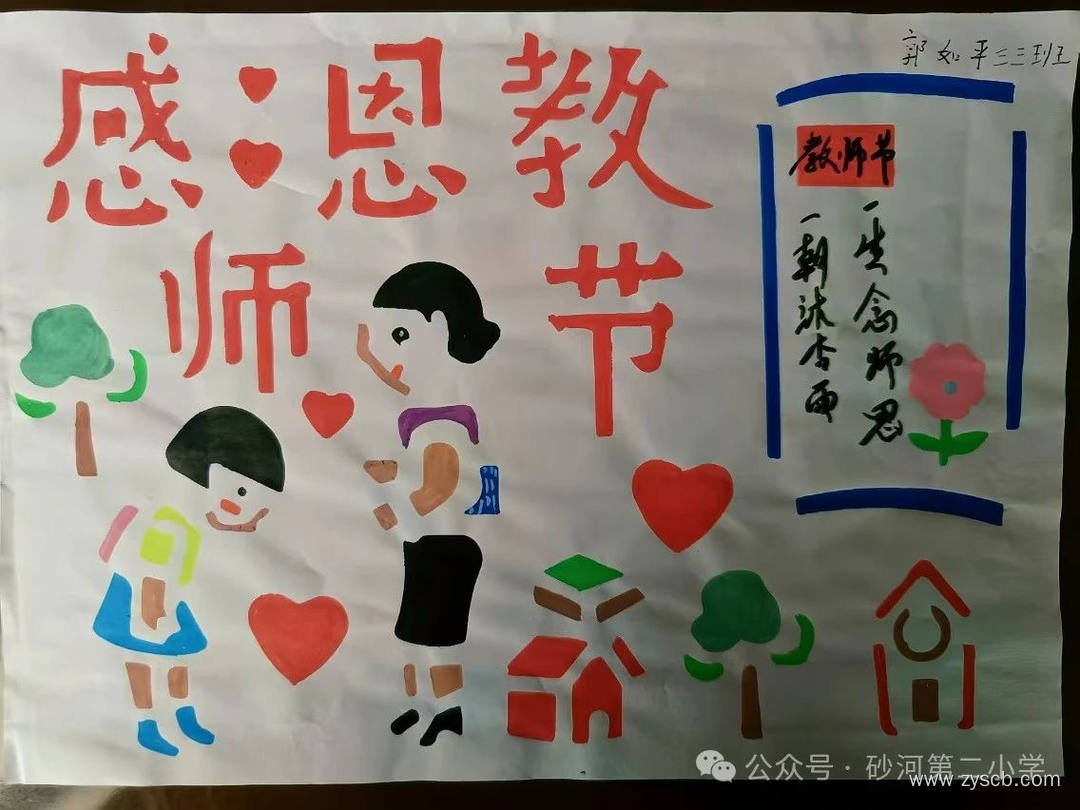 感恩教
师节
郭如平三三班
教师节
一朝沐杏雨
一生念师恩
公众号·砂河第二小学
www.zyscb.com